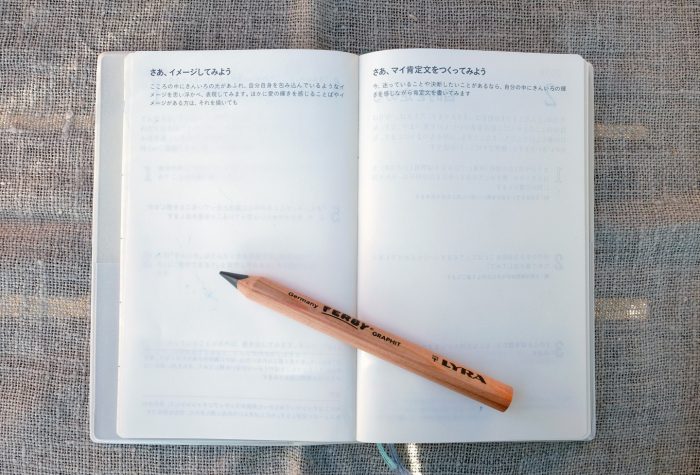 さあ、イメージしてみよう
こころの中にきんいろの光があふれ、自分自身を包み込んでいるようなイ
メージを思い浮かべ、表現してみます。ほかに愛の輝きを感じることばやイ
メージがある方は、それを描いても
さあ、マイ肯定文をつくってみよう
今、迷っていることや決断したいことがあるなら、自分の中にきんいろの輝
きを感じながら肯定文を書いてみます
Germany FERBY GRAPHIT LYRA